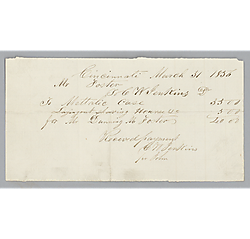 Cincinnati March 31 1856
Mr Foster
To C W Jenkins
To Metallic Case 35.00
Hearse 5.00
for Mr Dunning M Foster 40.00
Received payment
C W Jenkins
for John